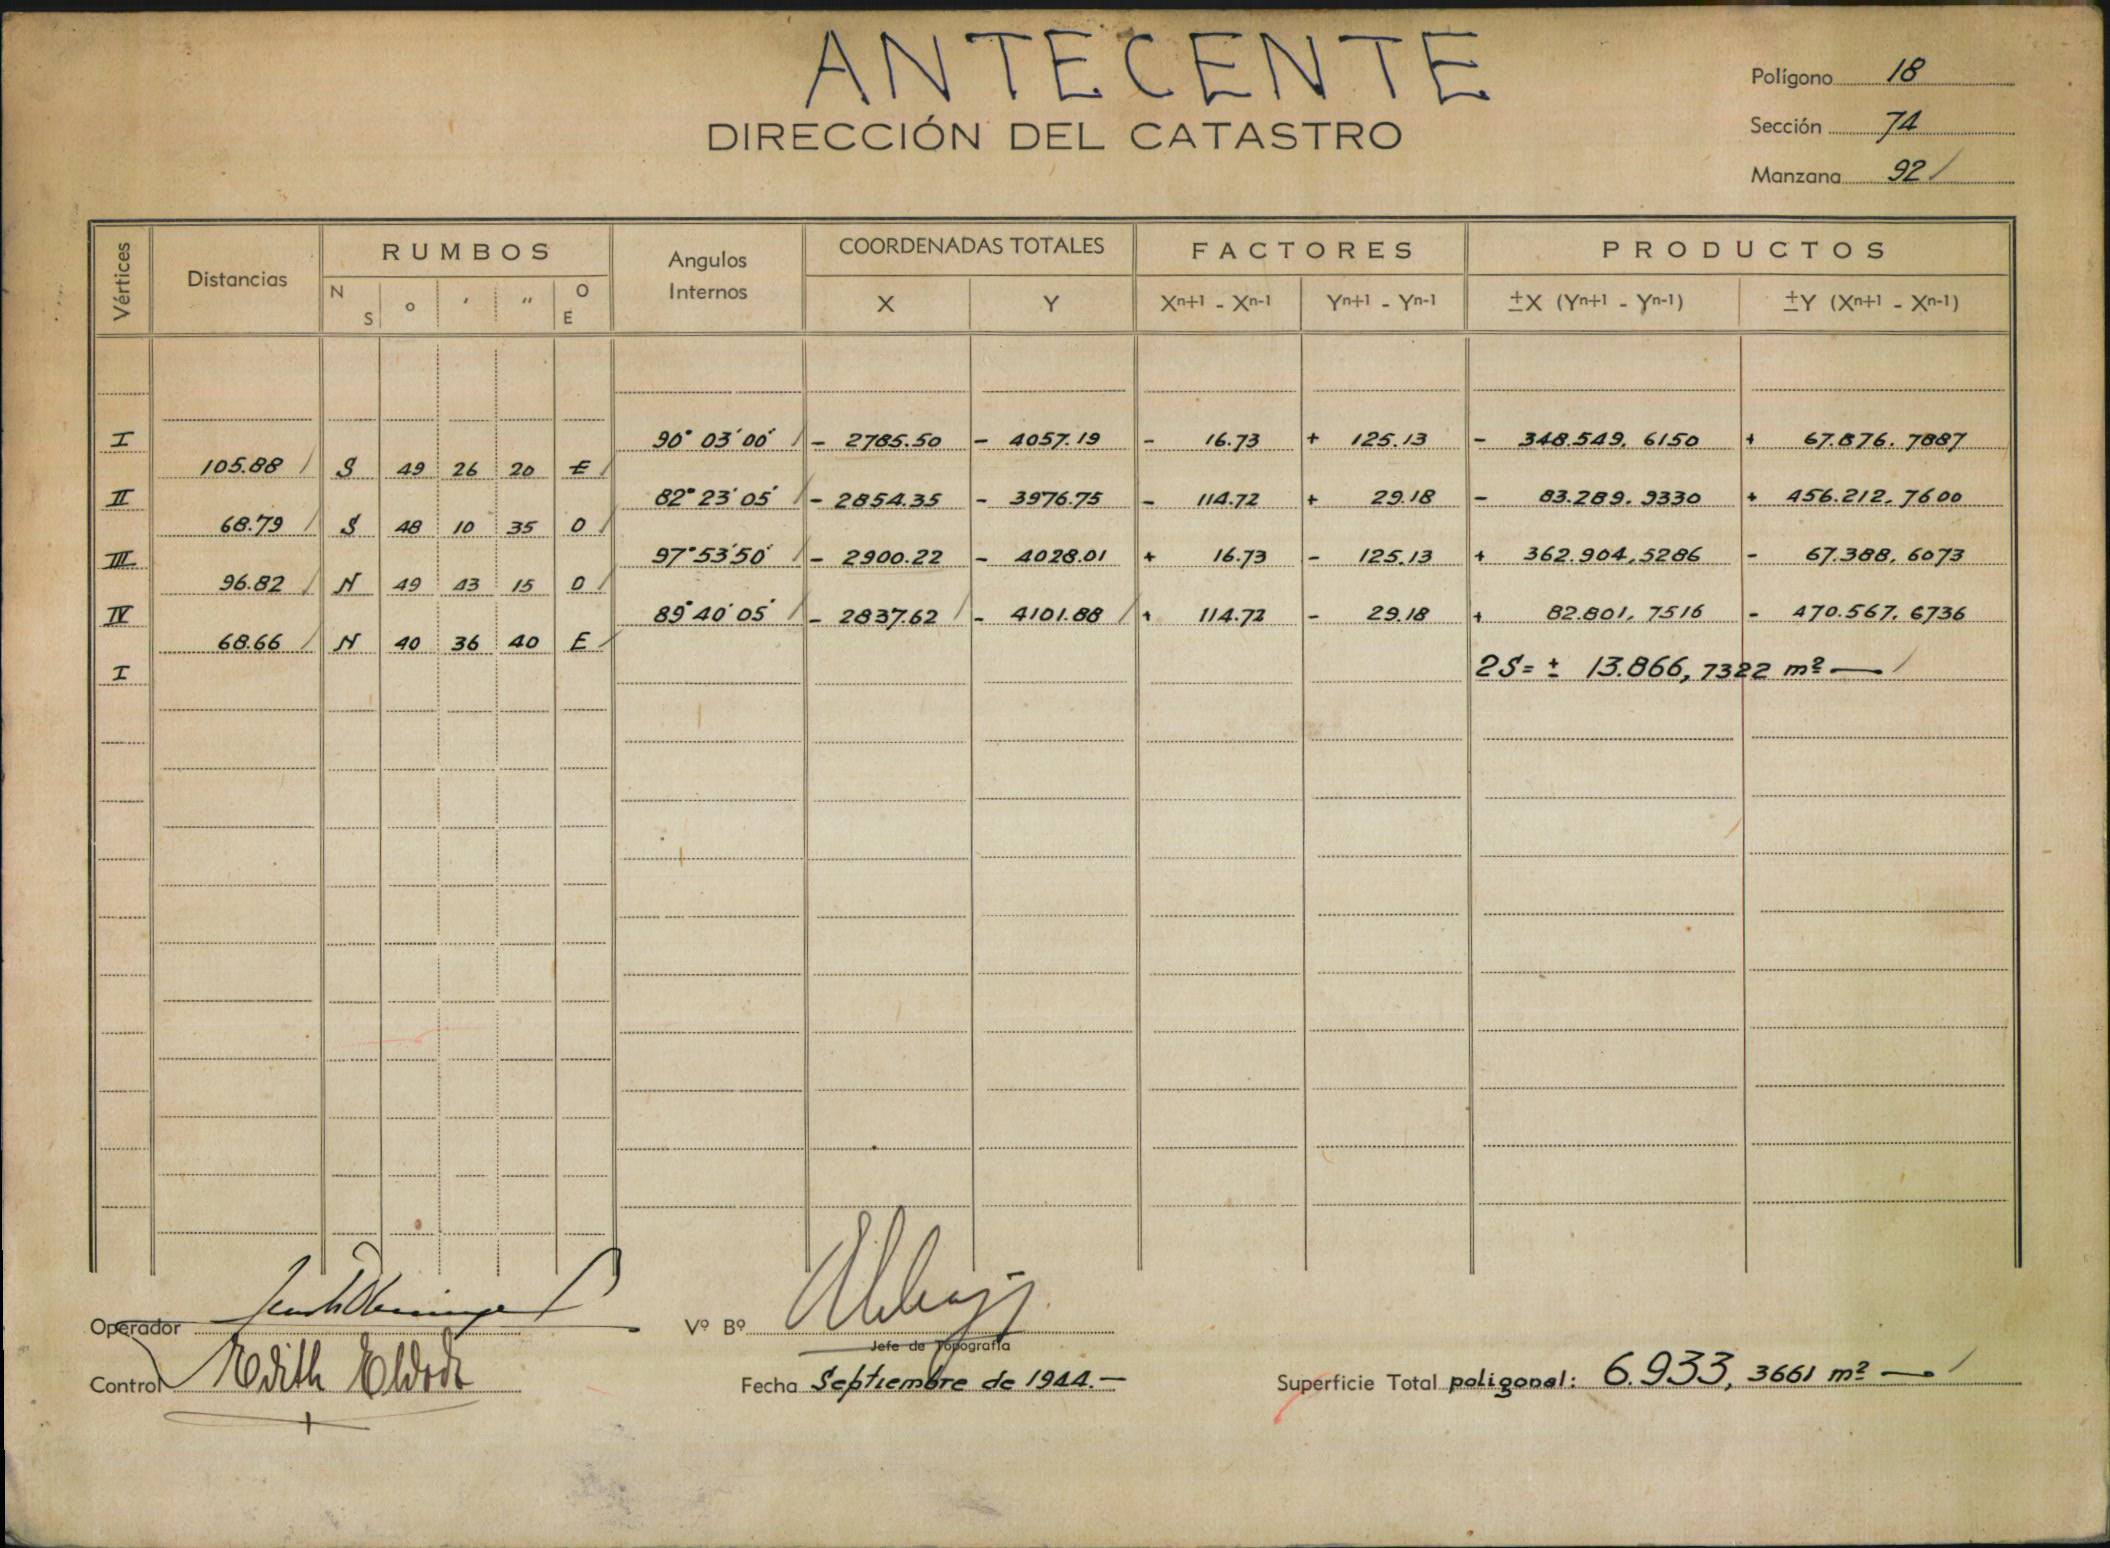 ANTECENTE
DIRECCIÓN DEL CATASTRO
Polígono 18
Sección 74
Manzana 92
Vértices Distancias RUMBOS Angulos Internos COORDENADAS TOTALES FACTORES PRODUCTOS
N S o ' " O E X Y Xn+1 - Xn-1 Yn+1 - Yn-1 ±X (Yn+1 - Yn-1) ±Y (Xn+1 - Xn-1)
I 90° 03' 00" - 2785.50 - 4057.19 - 16.73 + 125.13 - 348.549,6150 + 67.876.7887
105.88 S 49 26 20 E
II 82° 23' 05" - 2854.35 - 3976.75 - 114.72 + 29.18 - 83.289.9330 + 456.212.7600
68.79 S 48 10 35 O
III 97° 53' 50" - 2900.22 - 4028.01 + 16.73 - 125.13 + 362.904,5286 - 67.388,6073
96.82 N 49 43 15 O
IV 89° 40' 05" - 2837.62 - 4101.88 + 114.72 - 29.18 + 82.801,7516 - 470.567,6736
68.66 N 40 36 40 E
I 2S= ± 13.866,7322 m²
Operador
Vº Bº
Jefe de Topografía
Control Edith
Fecha Septiembre de 1944.-
Superficie Total poligonal: 6.933,3661 m²